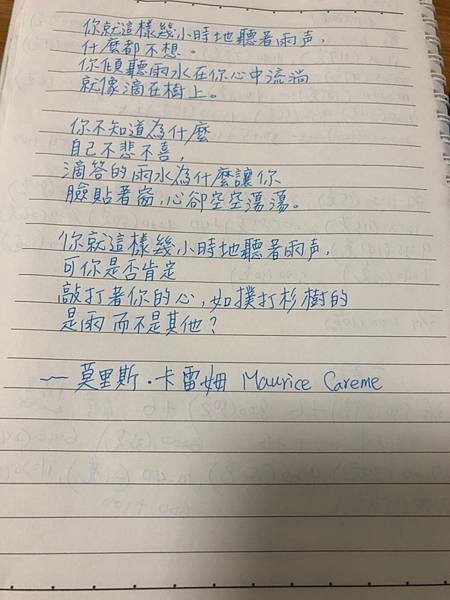 你就這樣幾小時地聽著雨声，
什麼都不想。
你傾聽雨水在你心中流淌
就像滴在樹上。
你不知道為什麼
自己不悲不喜，
滴答的雨水為什麼讓你
臉貼著窗，心卻空空蕩蕩。
你就這樣幾小時地聽著雨声，
可你是否肯定
敲打著你的心，如撲打杉樹的
是雨而不是其他？
— 莫里斯·卡雷姆 Maurice Careme